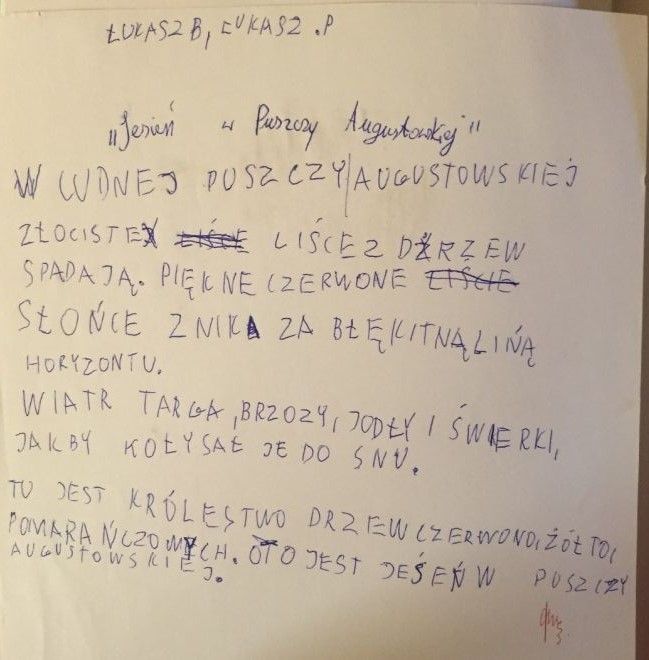 ŁUKASZ B, ŁUKASZ .P
„Jesień w Puszczy Augustowskiej"
W CUDNEJ PUSZCZY AUGUSTOWSKIEJ
ZŁOCISTE LIŚCE Z DRZEW
SPADAJĄ. PIĘKNE CZERWONE
SŁOŃCE ZNIKA ZA BŁĘKITNĄ LINĄ
HORYZONTU.
WIATR TARGA, BRZOZY, JODŁY I ŚWIERKI,
JAKBY KOŁYSAŁ JE DO SNU.
TU JEST KRÓLESTWO DRZEW CZERWONO, ŻÓŁTO,
POMARAŃCZOWYCH. OTO JEST JEŚEŃ W PUSZCZY
AUGUSTOWSKIEJ.